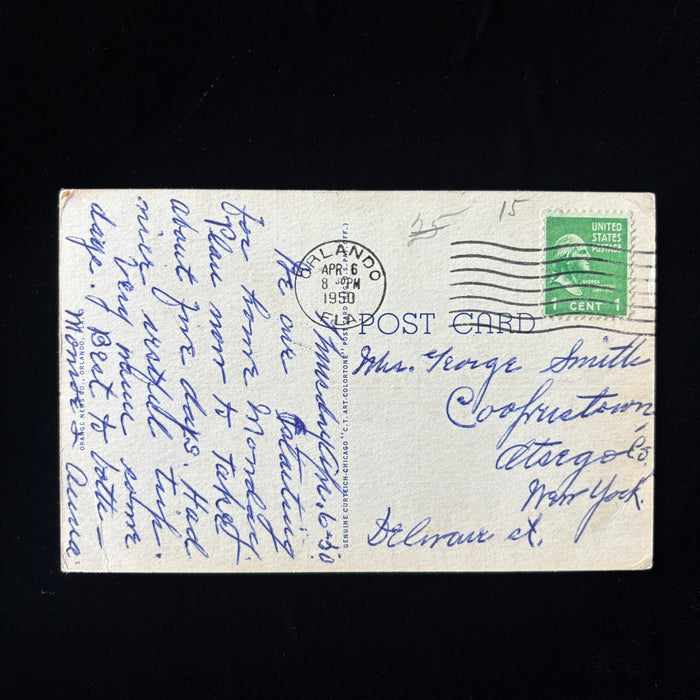 25
15
UNITED
STATES
POSTAGE
1 CENT 1
ORLANDO
APR 6
8 30 PM
1950
FLA.
POST CARD
Mrs. George Smith
Cooperstown
Otsego Co.
New York.
Delaware st.
GENUINE CURTEICH-CHICAGO "C.T. ART-COLORTONE" POST CARD
Thursday Apr. 6-50
We are starting
for home Monday.
Plan now to take
about five days. Had
nice restfull trip.
Very warm some
days. Best to both—
Monroe & Anna.
ORANGE NEWS CO., ORLANDO,